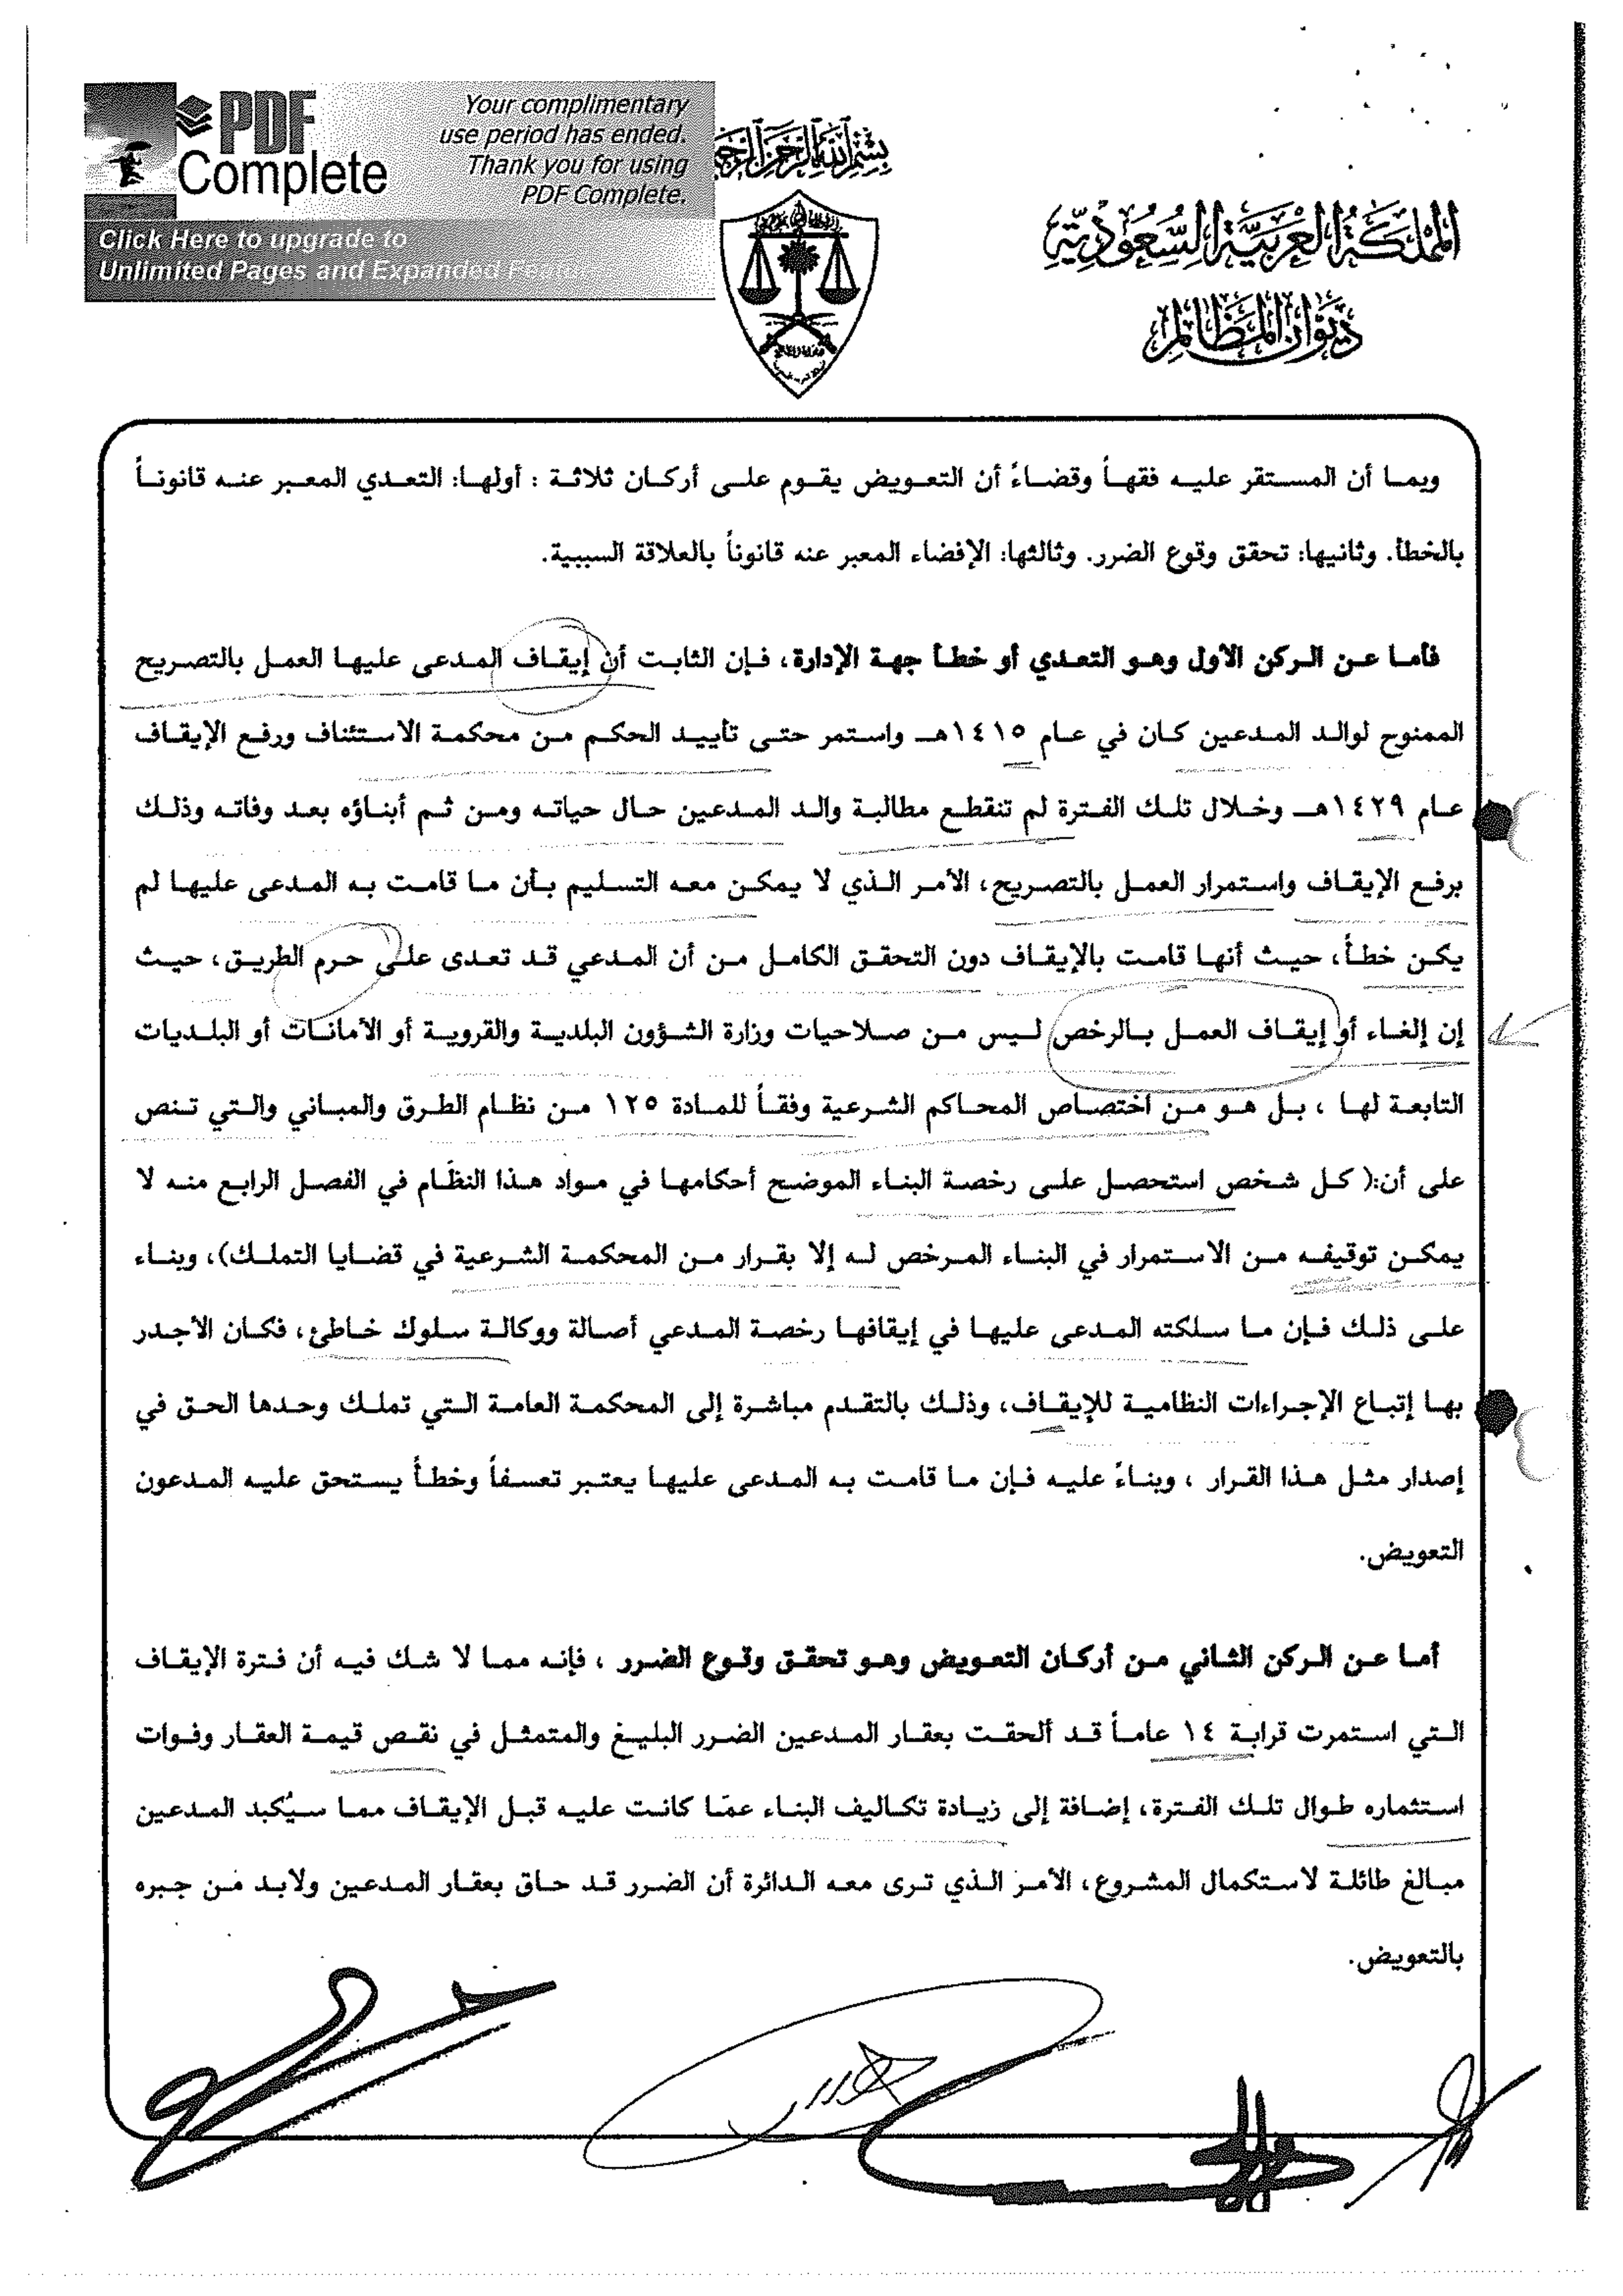 PDF Complete
Your complimentary
use period has ended.
Thank you for using
PDF Complete.
Click Here to upgrade to
Unlimited Pages and Expanded
بسم الله الرحمن الرحيم
المملكة العربية السعودية
ديوان المظالم
وبما أن المستقر عليه فقهاً وقضاءً أن التعويض يقوم على أركان ثلاثة : أولها: التعدي المعبر عنه قانوناً
بالخطأ. وثانيها: تحقق وقوع الضرر. وثالثها: الإفضاء المعبر عنه قانوناً بالعلاقة السببية.
فأما عن الركن الأول وهو التعدي أو خطأ جهة الإدارة، فإن الثابت أن إيقاف المدعى عليها العمل بالتصريح
الممنوح لوالد المدعين كان في عام ١٤١٥هـ واستمر حتى تأييد الحكم من محكمة الاستئناف ورفع الإيقاف
عام ١٤٢٩هـ وخلال تلك الفترة لم تنقطع مطالبة والد المدعين حال حياته ومن ثم أبناؤه بعد وفاته وذلك
برفع الإيقاف واستمرار العمل بالتصريح، الأمر الذي لا يمكن معه التسليم بأن ما قامت به المدعى عليها لم
يكن خطأ، حيث أنها قامت بالإيقاف دون التحقق الكامل من أن المدعي قد تعدى على حرم الطريق، حيث
إن إلغاء أو إيقاف العمل بالرخص ليس من صلاحيات وزارة الشؤون البلدية والقروية أو الأمانات أو البلديات
التابعة لها ، بل هو من اختصاص المحاكم الشرعية وفقاً للمادة ١٢٥ من نظام الطرق والمباني والتي تنص
على أن:( كل شخص استحصل على رخصة البناء الموضح أحكامها في مواد هذا النظام في الفصل الرابع منه لا
يمكن توقيفه من الاستمرار في البناء المرخص له إلا بقرار من المحكمة الشرعية في قضايا التملك)، وبناء
على ذلك فإن ما سلكته المدعى عليها في إيقافها رخصة المدعي أصالة ووكالة سلوك خاطئ، فكان الأجدر
بها إتباع الإجراءات النظامية للإيقاف، وذلك بالتقدم مباشرة إلى المحكمة العامة التي تملك وحدها الحق في
إصدار مثل هذا القرار ، وبناءً عليه فإن ما قامت به المدعى عليها يعتبر تعسفاً وخطأً يستحق عليه المدعون
التعويض.
أما عن الركن الثاني من أركان التعويض وهو تحقق وقوع الضرر ، فإنه مما لا شك فيه أن فترة الإيقاف
التي استمرت قرابة ١٤ عاماً قد ألحقت بعقار المدعين الضرر البليغ والمتمثل في نقص قيمة العقار وفوات
استثماره طوال تلك الفترة، إضافة إلى زيادة تكاليف البناء عمّا كانت عليه قبل الإيقاف مما سيُكبد المدعين
مبالغ طائلة لاستكمال المشروع، الأمر الذي ترى معه الدائرة أن الضرر قد حاق بعقار المدعين ولابد من جبره
بالتعويض.